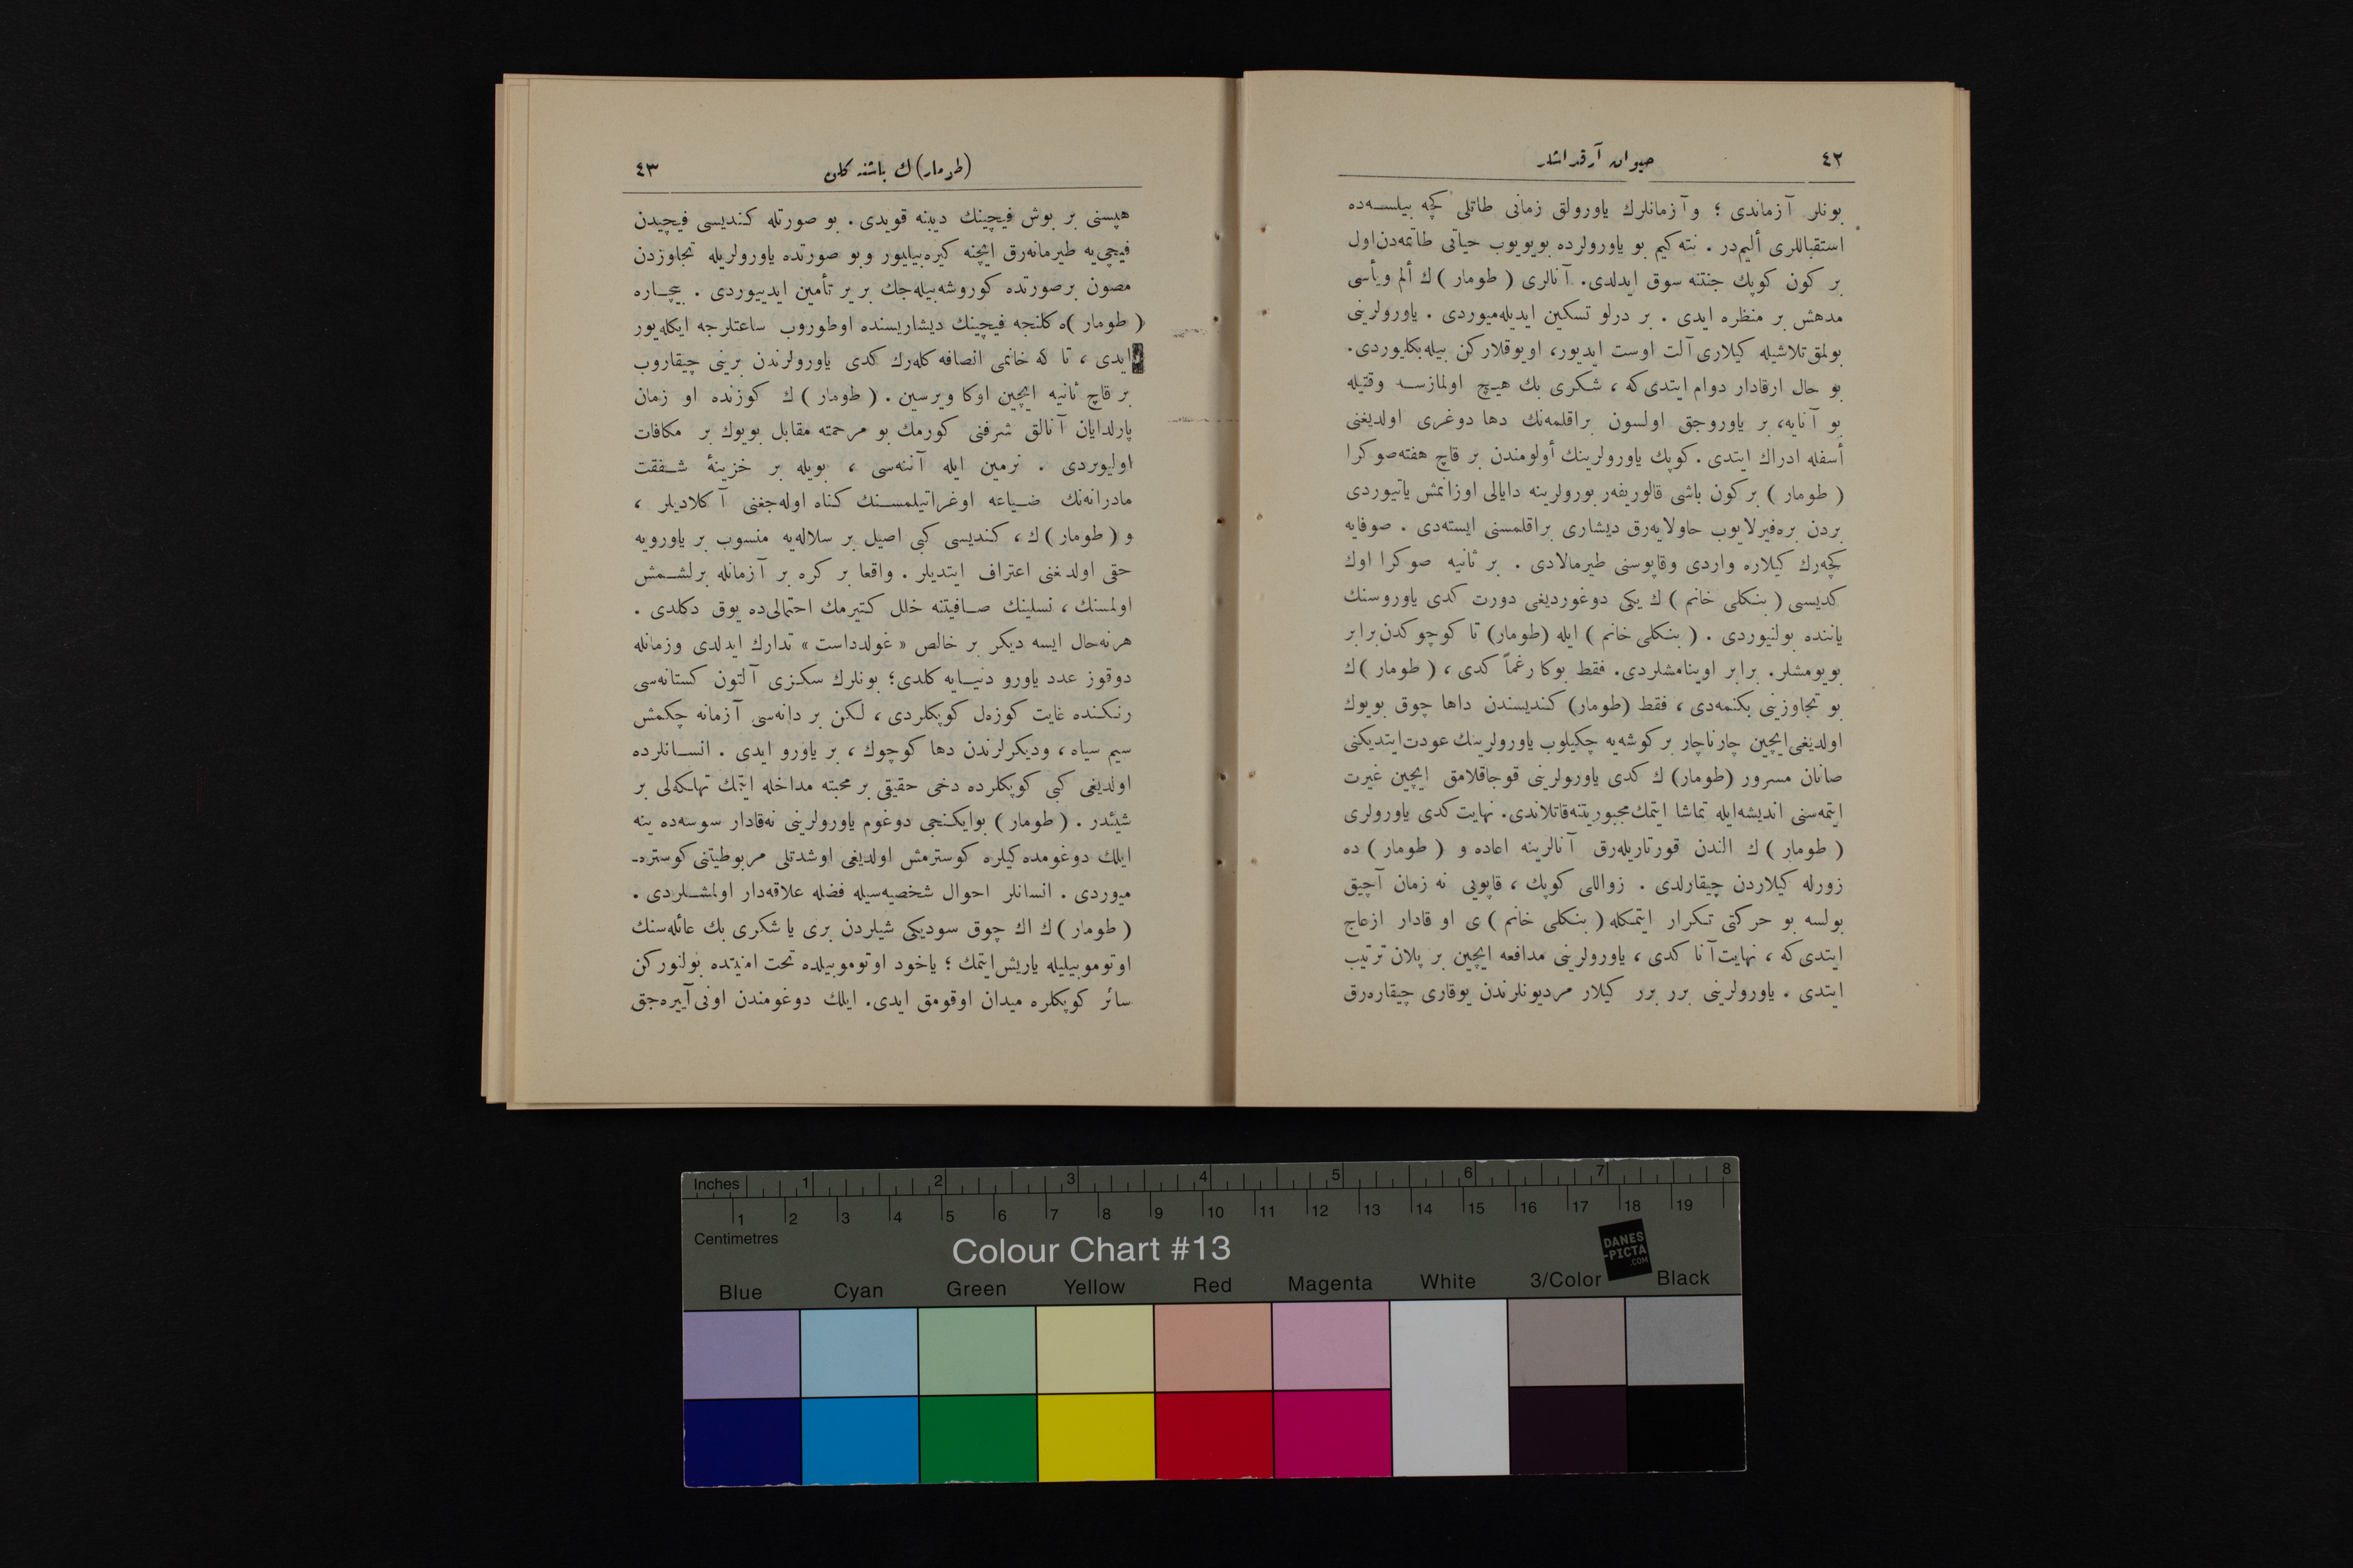 ٤٢
حیوان آرقداشلر
بونلر آزماندی ؛ وآزمانلرك یاورولق زمانی طاتلی کچه بیلسه‌ده
استقباللری ألیم‌در . نته‌کیم بو یاورولرده بویویوب حیاتی طاتمه‌دن‌اول
بر کون کوپك جنتنه سوق ایدلدی. آنالری ( طومار )ك ألم ویأسی
مدهش بر منظره ایدی . بر درلو تسکین ایدیله‌میوردی . یاورولرینی
بولمق‌تلاشیله کیلاری آلت اوست ایدیور، اویوقلارکن بیله‌بکلیوردی.
بو حال ارقادار دوام ایتدی‌که ، شکری بك هیچ اولمازسه وقتیله
بو آنایه، بر یاوروجق اولسون براقلمه‌نك دها دوغری اولدیغنی
أسفله ادراك ایتدی .کوپك یاورولرینك أولومندن بر قاچ هفته‌صوکرا
( طومار ) بر کون باشی قالوریفه‌ر بورولرینه دایالی اوزانمش یاتیوردی
بردن بره‌فیرلایوب حاولایه‌رق دیشاری براقلمسنی ایسته‌دی . صوفایه
کچه‌رك کیلاره واردی وقاپوسنی طیرمالادی . بر ثانیه صوکرا اوك
کدیسی ( بنکلی خانم ) ك یکی دوغوردیغی دورت کدی یاوروسنك
یاننده بولنیوردی . ( بنکلی خانم ) ایله (طومار) تا کوچوکدن‌برابر
بویومشلر. برابر اوینامشلردی. فقط بوکا رغماً کدی ، ( طومار )ك
بو تجاوزینی بکنمه‌دی ، فقط (طومار) کندیسندن داها چوق بویوك
اولدیغی‌ایچین چارناچار بر کوشه‌یه چکیلوب یاورولرینك عودت‌ایتدیکنی
صانان مسرور (طومار) ك کدی یاورولرینی قوجاقلامق ایچین غیرت
ایتمه‌سنی اندیشه‌ایله تماشا ایتمك‌مجبوریتنه‌قاتلاندی. نهایت‌کدی یاورولری
( طومار ) ك الندن قورتاریله‌رق آنالرینه اعاده و ( طومار ) ده
زورله کیلاردن چیقارلدی . زواللی کوپك ، قاپویی نه زمان آچیق
بولسه بو حرکتی تکرار ایتمکله ( بنکلی خانم ) ی او قادار ازعاج
ایتدی‌که ، نهایت‌آنا کدی ، یاورولرینی مدافعه ایچین بر پلان ترتیب
ایتدی . یاورولرینی برر برر کیلار مردیونلرندن یوقاری چیقاره‌رق
(طومار)ك باشنه کلن
٤٣
هپسنی بر بوش فیچینك دیبنه قویدی . بو صورتله کندیسی فیچیدن
فیچی‌یه طیرمانه‌رق ایچنه کیره‌بیلیور وبو صورتده یاورولریله تجاوزدن
مصون برصورتده کوروشه‌بیله‌جك بر یر تأمین ایدییوردی . بیچاره
( طومار )ه کلنجه فیچینك دیشاریسنده اوطوروب ساعتلرجه ایکله‌یور
ایدی ، تا که خانمی انصافه کله‌رك کدی یاورولرندن برینی چیقاروب
بر قاچ ثانیه ایچین اوکا ویرسین . ( طومار ) ك کوزنده او زمان
پارلدایان آنالق شرفنی کورمك بو مرحمته مقابل بویوك بر مکافات
اولیوردی . نرمین ایله آننه‌سی ، بویله بر خزینهٔ شفقت
مادرانه‌نك ضیاعه اوغراتیلمسنك کناه اوله‌جغنی آکلادیلر ،
و ( طومار )ك ، کندیسی کبی اصیل بر سلاله‌یه منسوب بر یاورویه
حقی اولدیغنی اعتراف ایتدیلر . واقعا بر کره بر آزمانله برلشمش
اولمسنك ، نسلینك صافیتنه خلل کتیرمك احتمالی‌ده یوق دکلدی .
هرنه‌حال ایسه دیکر بر خالص « غولدداست » تدارك ایدلدی وزمانله
دوقوز عدد یاورو دنیایه کلدی؛ بونلرك سکزی آلتون کستانه‌سی
رنکنده غایت کوزه‌ل کوپکلردی ، لکن بر دانه‌سی آزمانه چکمش
سیم سیاه ، ودیکرلرندن دها کوچوك ، بر یاورو ایدی . انسانلرده
اولدیغی کبی کوپکلرده دخی حقیقی بر محبته مداخله ایتمك تهلکه‌لی بر
شیئدر . ( طومار ) بوایکنجی دوغوم یاورولرینی نه‌قادار سوسه‌ده ینه
ایلك دوغومده‌کیلره کوسترمش اولدیغی اوشدتلی مربوطیتنی کوستره-
میوردی . انسانلر احوال شخصیه‌سیله فضله علاقه‌دار اولمشلردی .
( طومار )ك اك چوق سودیکی شیلردن بری یا شکری بك عائله‌سنك
اوتوموبیلیله یاریش‌ایتمك ؛ یاخود اوتوموبیلده تحت امنیتده بولنورکن
سائر کوپکلره میدان اوقومق ایدی. ایلك دوغومندن اونی‌آییره‌جق
Inches 1 2 3 4 5 6 7 8
1 2 3 4 5 6 7 8 9 10 11 12 13 14 15 16 17 18 19
Centimetres
Colour Chart #13
DANES
-PICTA
.COM
Blue Cyan Green Yellow Red Magenta White 3/Color Black